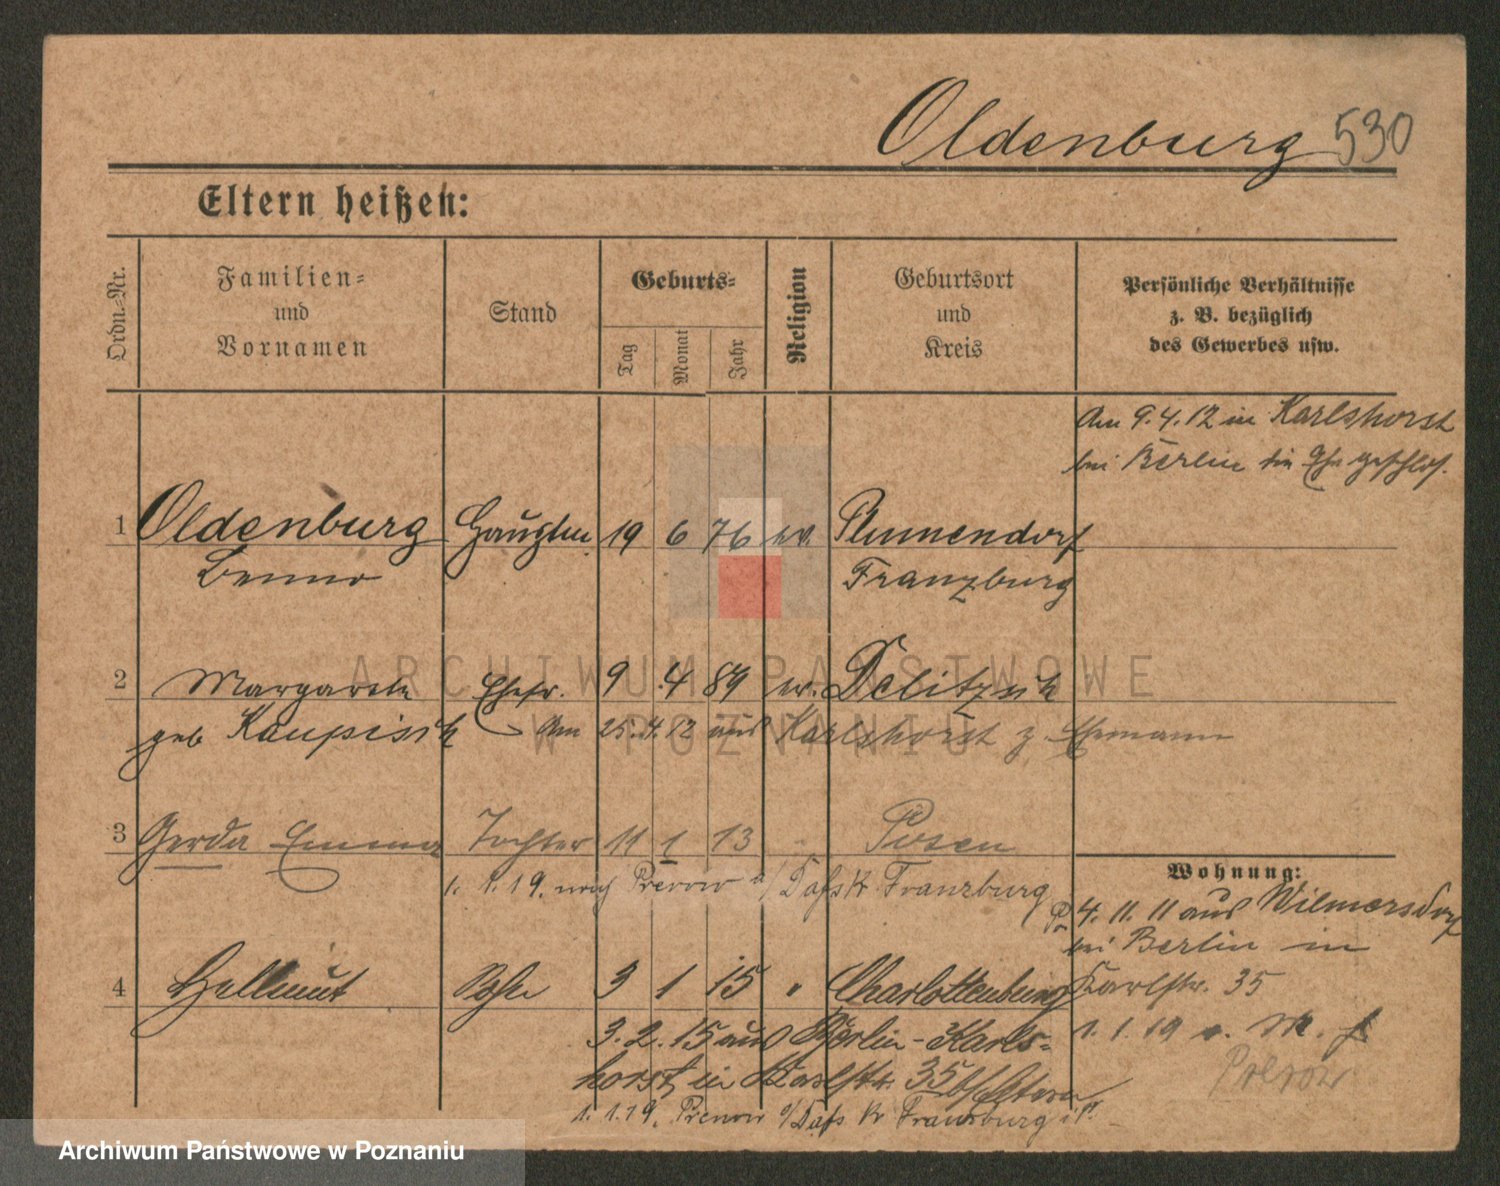 Oldenburg 530
Eltern heißen:
Ordn.-Nr.
Familien-
und
Vornamen
Stand
Geburts-
Tag
Monat
Jahr
Religion
Geburtsort
und
Kreis
Persönliche Verhältnisse
z. B. bezüglich
des Gewerbes usw.
Am 9.4.12 in Karlshorst
bei Berlin die Ehe geschlos.
1 Oldenburg Hauptm. 19 6 76 ev. Plumendorf
Benno Franzburg
2 Margarete Ehefr. 9 4 89 ev. Delitzsch
geb Kaupisch Am 25.4.12 aus Karlshorst z. Ehemann
3 Gerda Emma Tochter 11 1 13 Posen
1. 1. 19. nach Prerow a/Dafs Kr Franzburg
Wohnung:
4. 11. 11 aus Wilmersdorf
bei Berlin in
4 Hellmut Sohn 3 1 15 " Charlottenburg
Karlstr. 35
3. 2. 15 aus Berlin-Karls-
horst in Karlstr. 35 b/Eltern
1. 1. 19 n.
Prerow
1. 1. 19. Prerow a/Dafs Kr Franzburg i/P.
ARCHIWUM PAŃSTWOWE
W POZNANIU
Archiwum Państwowe w Poznaniu